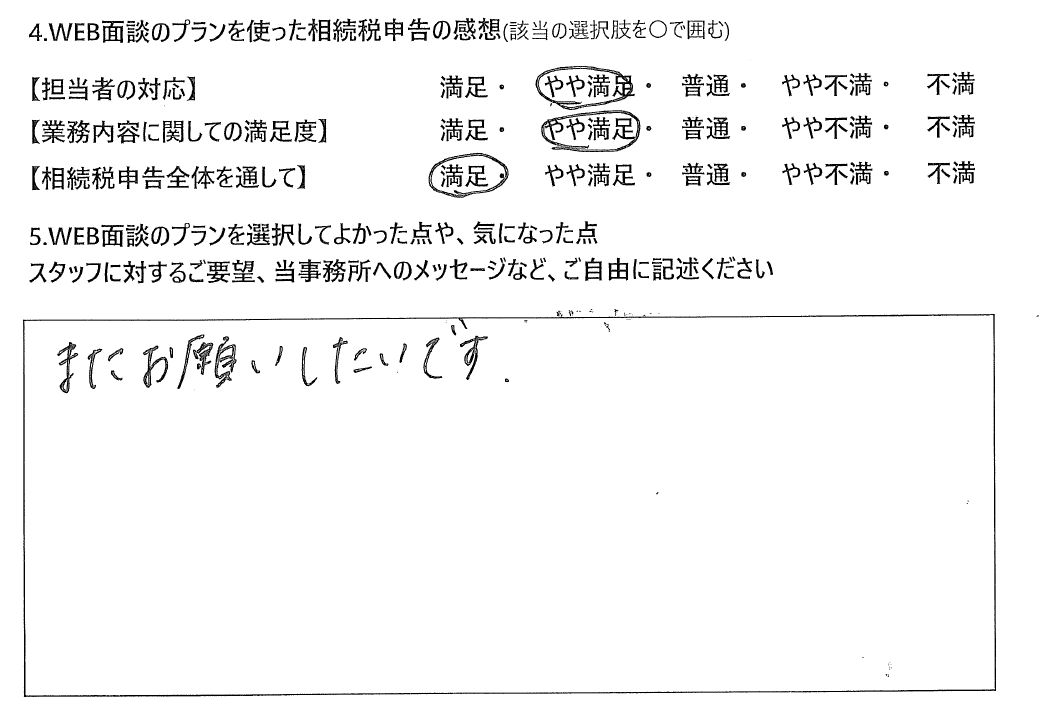 4.WEB面談のプランを使った相続税申告の感想(該当の選択肢を○で囲む)
【担当者の対応】 満足・ やや満足・ 普通・ やや不満・ 不満
【業務内容に関しての満足度】 満足・ やや満足・ 普通・ やや不満・ 不満
【相続税申告全体を通して】 満足・ やや満足・ 普通・ やや不満・ 不満
5.WEB面談のプランを選択してよかった点や、気になった点
スタッフに対するご要望、当事務所へのメッセージなど、ご自由に記述ください
またお願いしたいです.